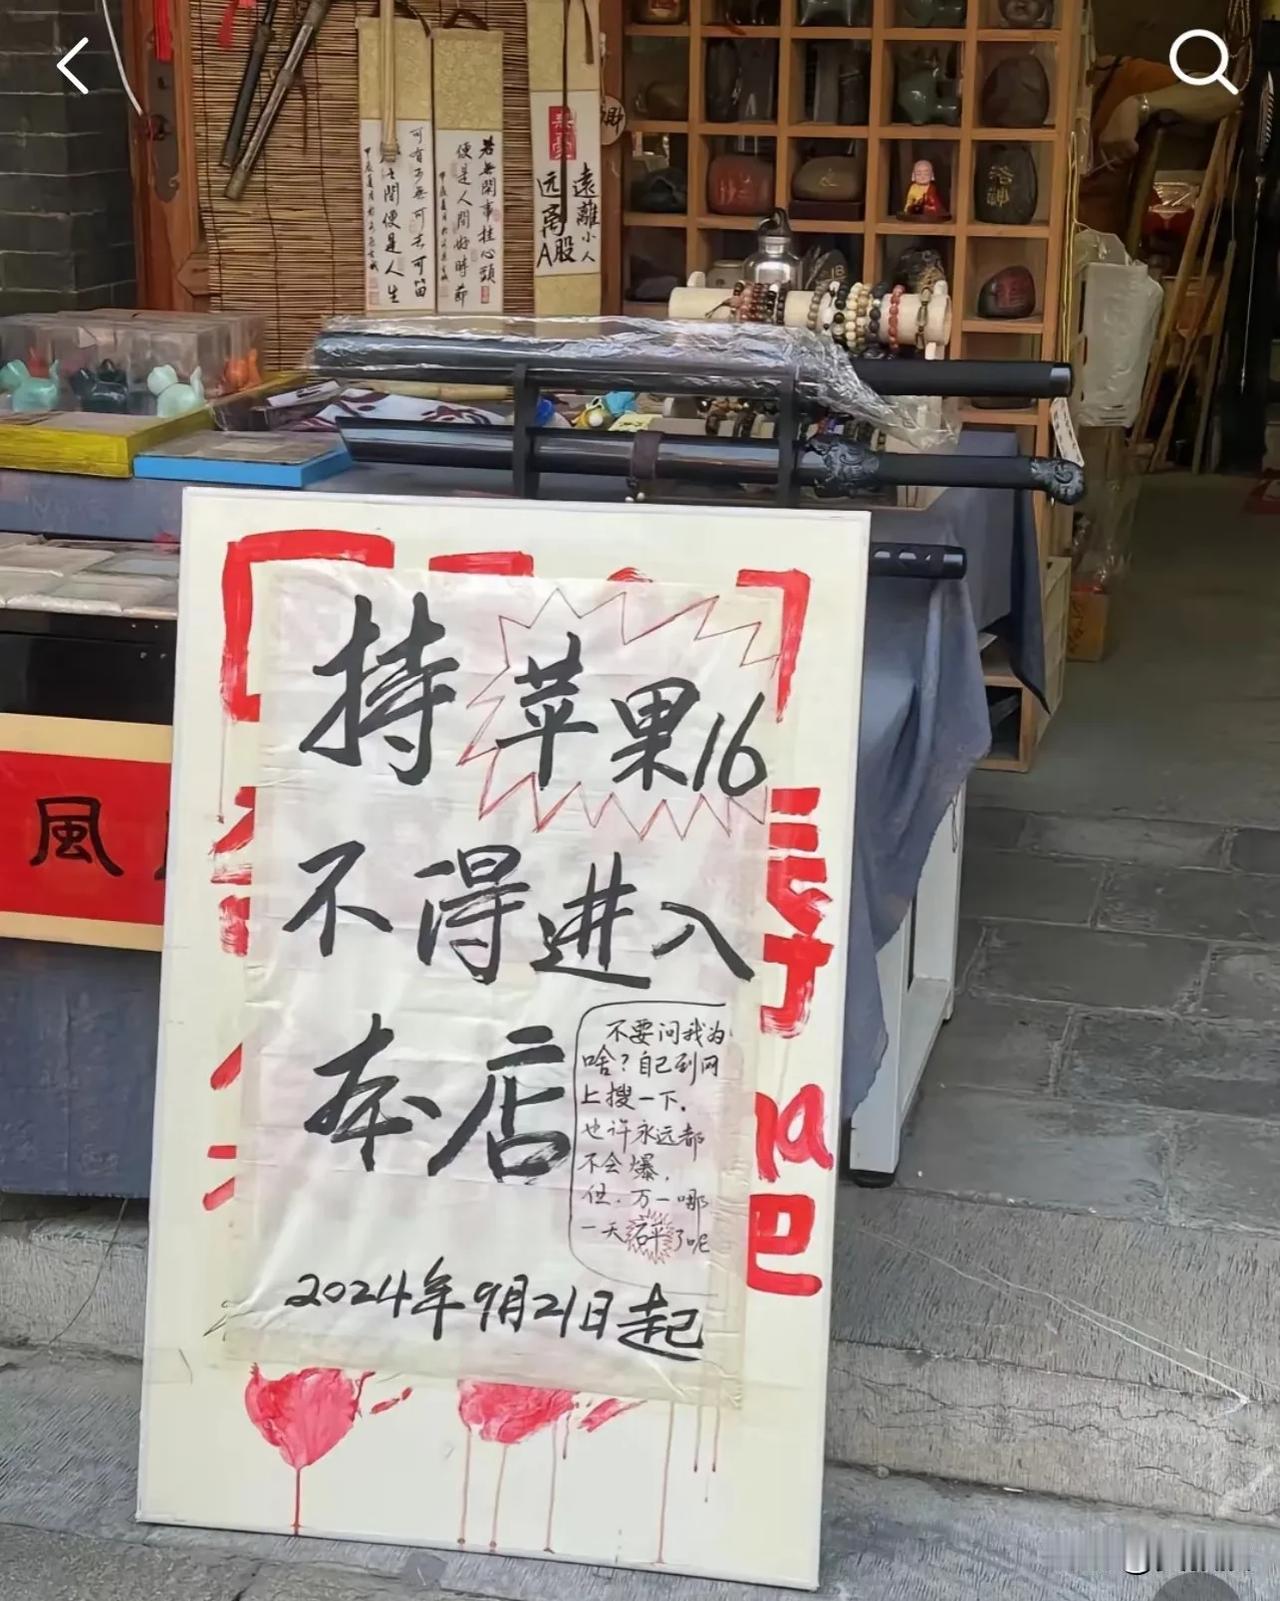 若無閑事挂心頭
便是人間好時節
可有可無可去可留
間便是人生
遠離小人
远离A股
風
持苹果16
不得进入
本店
不要问我为
啥？自己到网
上搜一下。
也许永远都
不会爆，
但，万一哪
一天
了呢
2024年9月21日起
吧